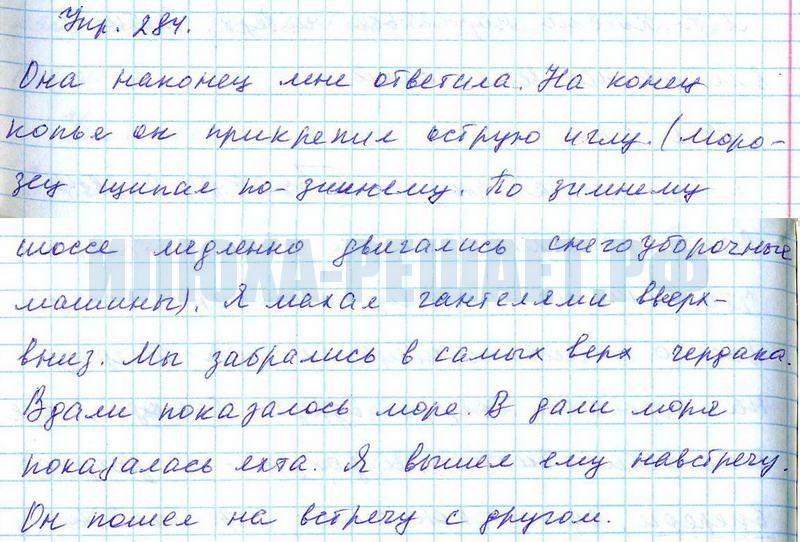 Упр. 284.
Она наконец мне ответила. На конец
копья он прикрепил острую иглу. (Моро-
зец щипал по-зимнему. По зимнему
шоссе медленно двигались снегоуборочные
машины). Я махал гантелями вверх-
вниз. Мы забрались в самых верх чердака.
Вдали показалось море. В дали моря
показалась яхта. Я вышел ему навстречу.
Он пошел на встречу с другом.
ИЛЮХА-РЕШАЕТ.РФ